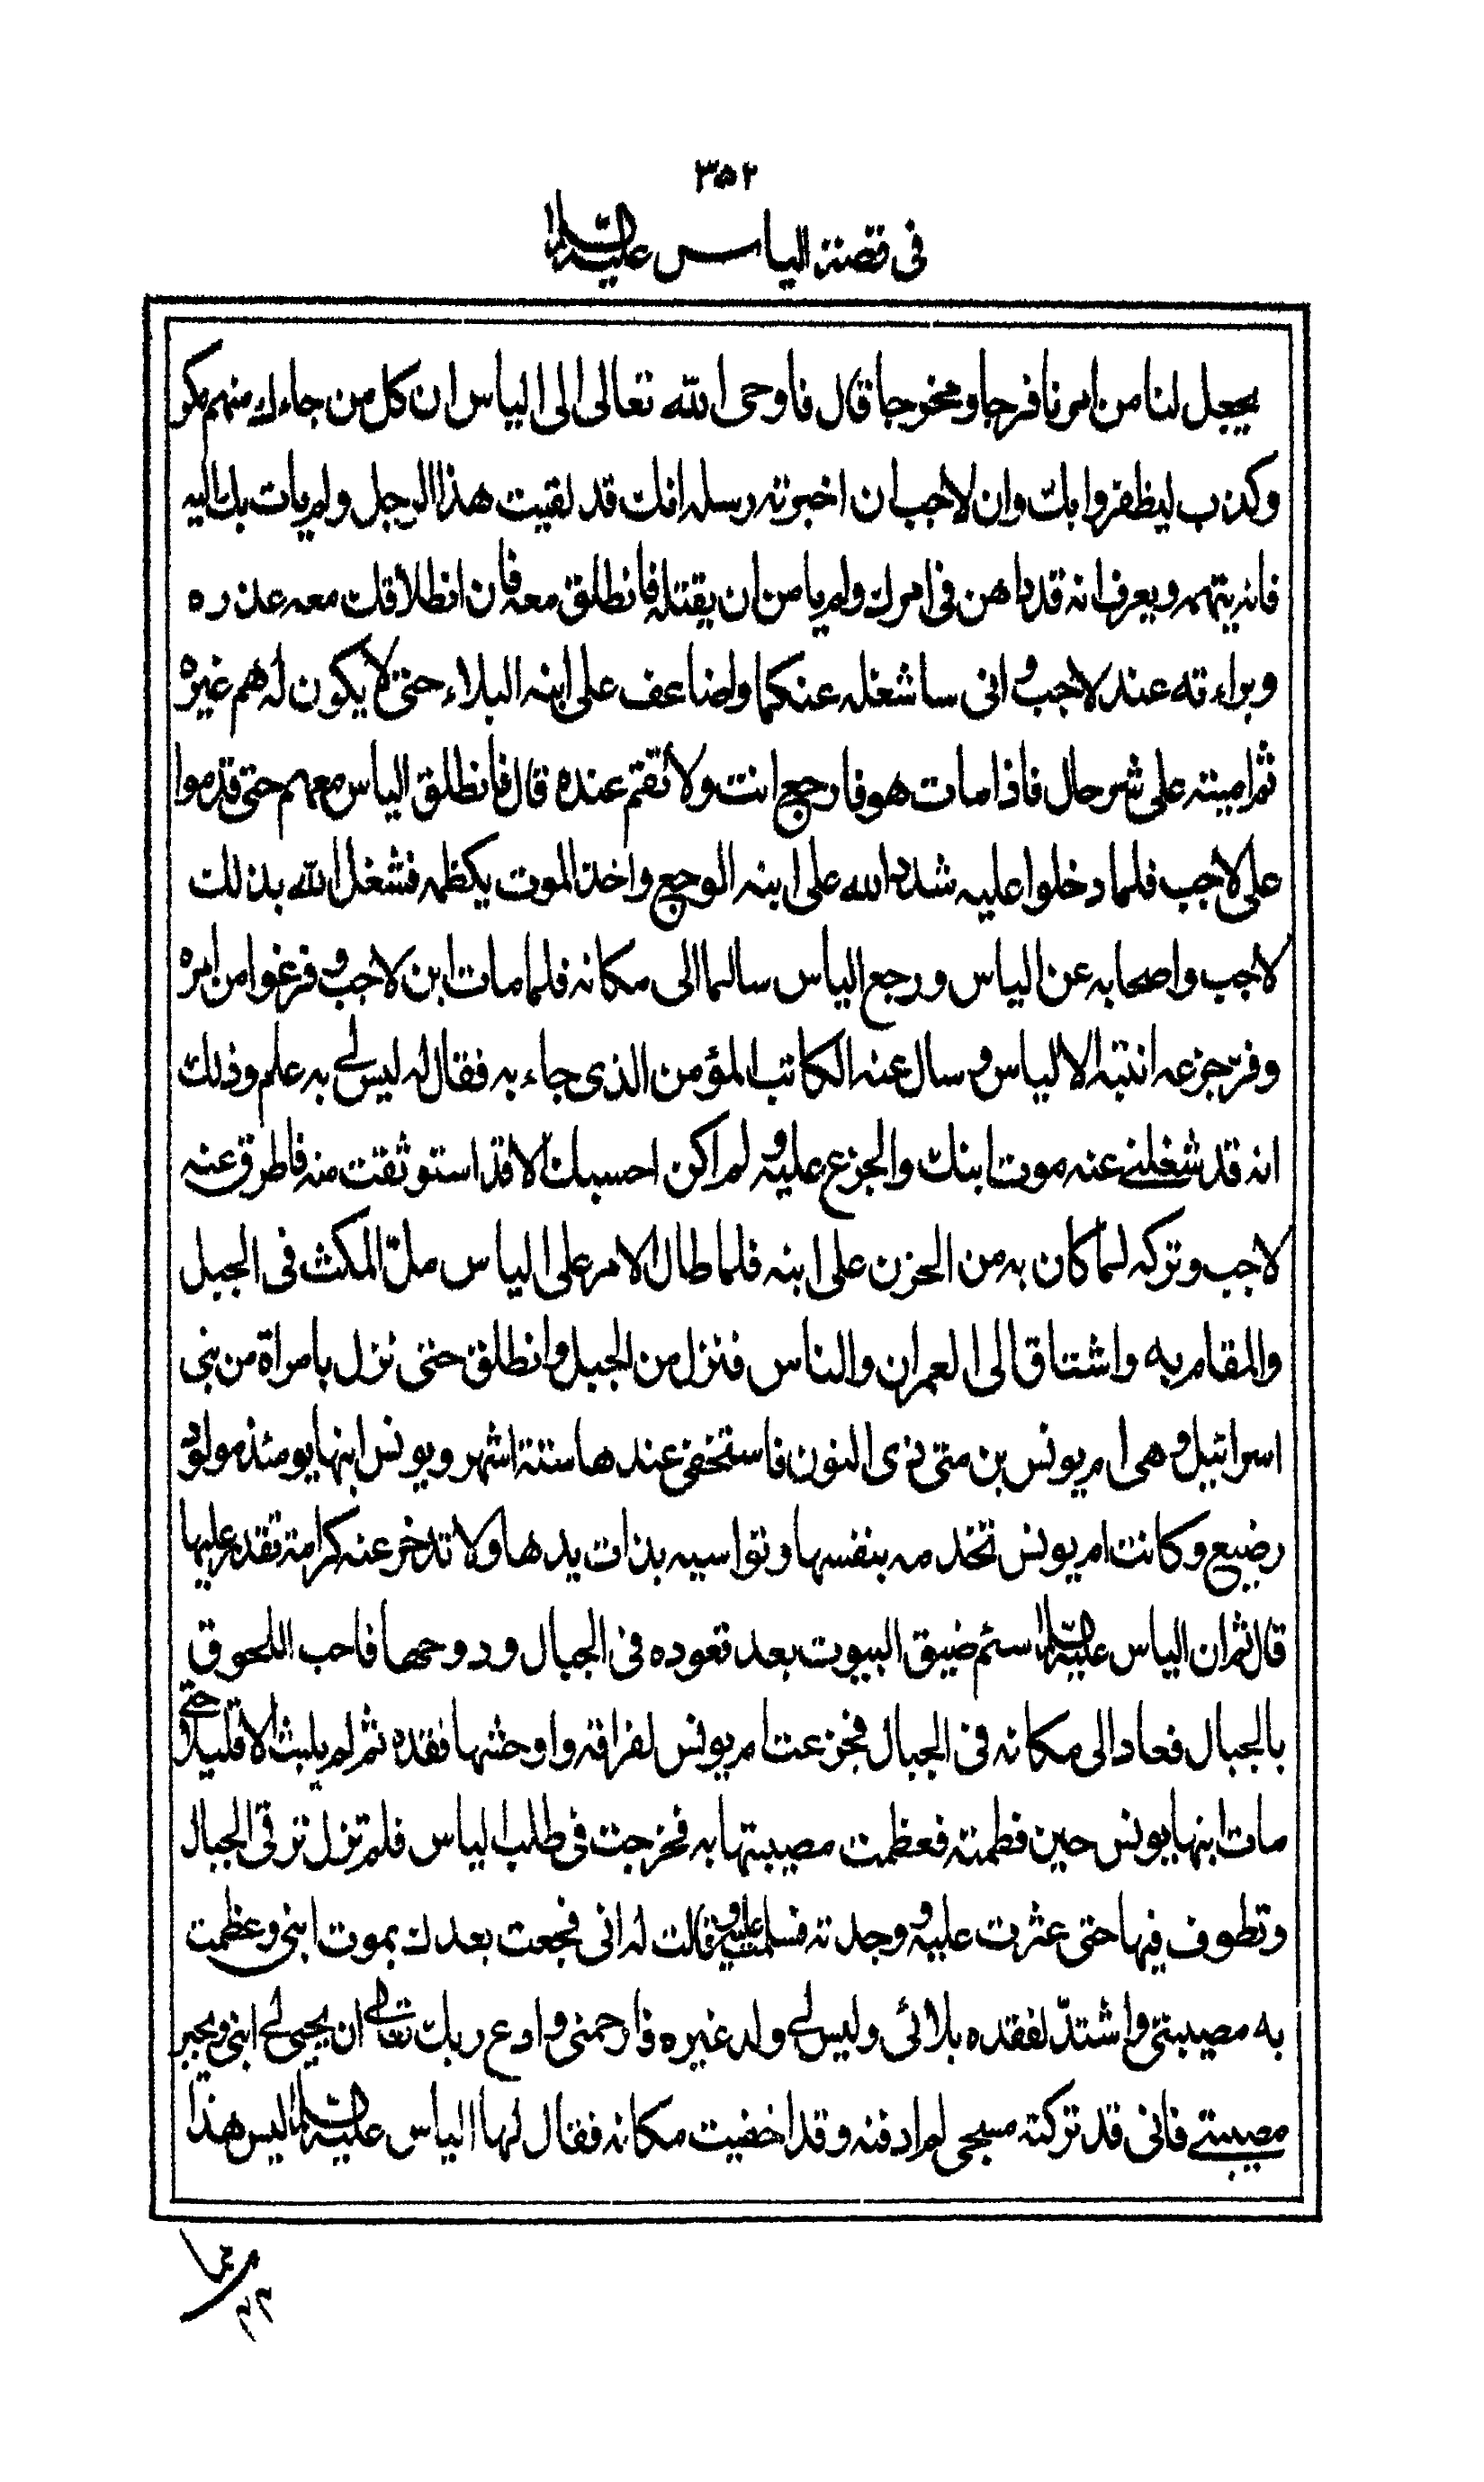 ٣٥٢
فى قصة الياس عليه السلام
يجعل لنا من امرنا فرجا ومخرجا قال فاوحى الله تعالى الى الياس ان كل من جاءك منهم مكر
وكذب ليظفروا بك وان لاجب ان اخبرته رسله انك قد لقيت هذا الرجل ولم يات بك اليه
فانه يتهمه ويعرف انه قد داهن فى امرك ولم يامن ان يقتله فانطلق معه فان انطلاقك معه عذره
وبراءته عند لاجب وانى ساشغله عنكما واضاعف على ابنه البلاء حتى لا يكون له هم غيره
ثم اميته على شر حال فاذا مات هو فارجع انت ولا تقم عنده قال فانطلق الياس معهم حتى قدموا
على لاجب فلما دخلوا عليه شدد الله على ابنه الوجع واخذ الموت يكظمه فشغل الله بذلك
لاجب واصحابه عن الياس ورجع الياس سالما الى مكانه فلما مات ابن لاجب وفرغوا من امره
وفر جزعه انتبه الالياس وسال عنه الكاتب المؤمن الذى جاء به فقال له ليس لى به علم وذلك
انه قد شغلنى عنه موت ابنك والجزع عليه ولم اكن احسبك الا قد استوثقت منه فاطرق عنه
لاجب وتركه لما كان به من الحزن على ابنه فلما طال الامر على الياس مل المكث فى الجبل
والمقام به واشتاق الى العمران والناس فنزل من الجبل وانطلق حتى نزل بامراة من بنى
اسرائيل وهى ام يونس بن متى ذى النون فاستخفى عندها ستة اشهر ويونس ابنها يومئذ مولود
رضيع وكانت ام يونس تخدمه بنفسها وتواسيه بذات يدها ولا تدخر عنه كرامة تقدر عليها
قال ثم ان الياس عليه السلام سئم ضيق البيوت بعد تعوده فى الجبال ودوحها فاحب اللحوق
بالجبال فعاد الى مكانه فى الجبال فجزعت ام يونس لفراقه واوحشها فقده ثم لم يلبث الا قليلا حتى
مات ابنها يونس حين فطمته فعظمت مصيبتها به فخرجت فى طلب الياس فلم تزل ترقى الجبال
وتطوف فيها حتى عثرت عليه ووجدته فسلمت عليه وقالت له انى فجعت بعدك بموت ابنى وعظمت
به مصيبتى واشتدّ لفقده بلائى وليس لى ولد غيره فارحمنى وادع ربك تعالى ان يحيى لى ابنى ويجبر
مصيبتى فانى قد تركته مسجى لم ادفنه وقد اخفيت مكانه فقال لها الياس عليه السلام ليس هذا